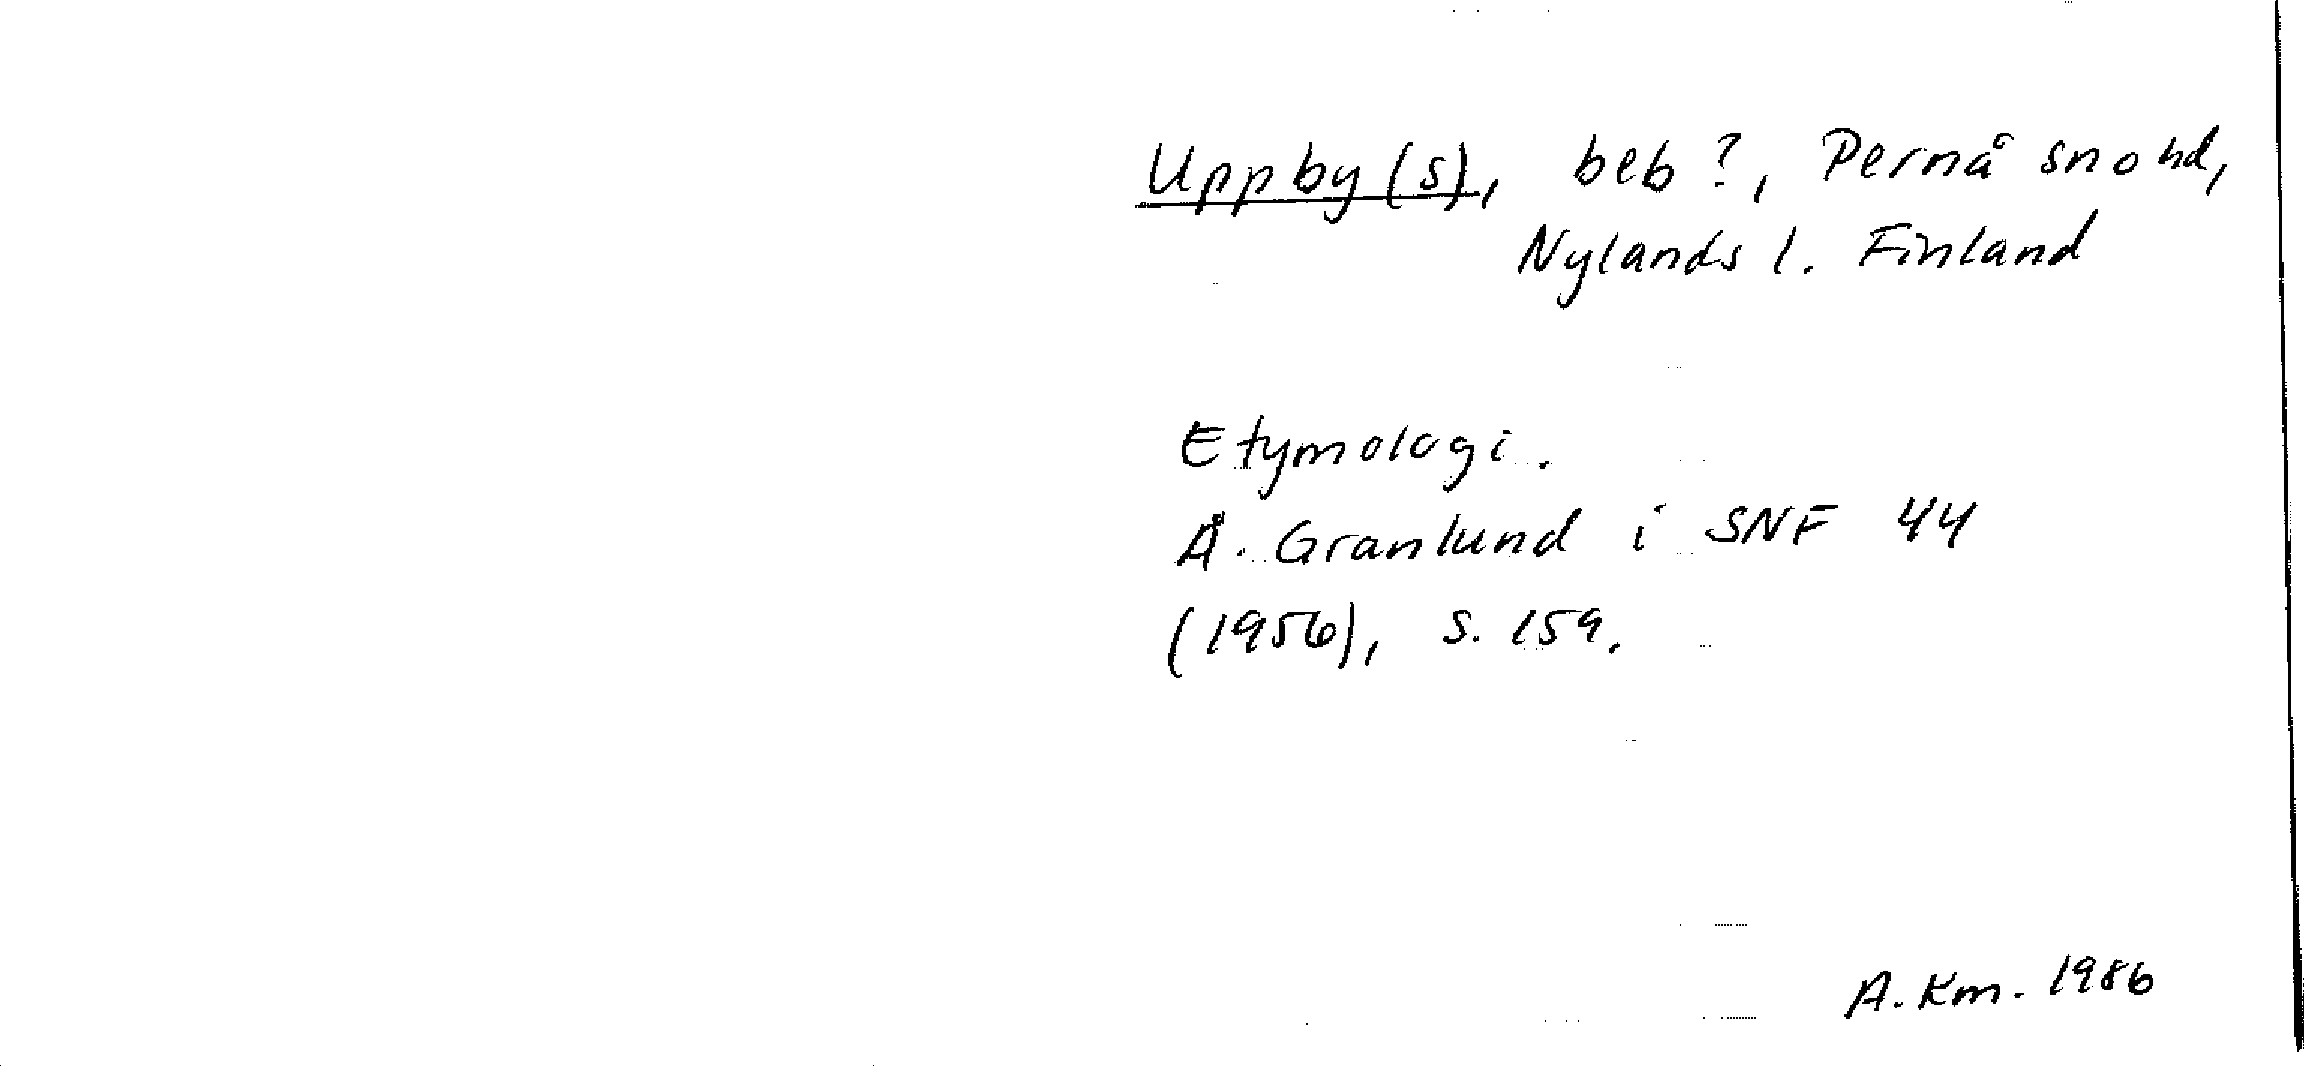 Uppby(s), beb?, Pernå sn o hd,
Nylands l. Finland
Etymologi.
Å. Granlund i SNF 44
(1956), s. 159.
A. Km. 1986